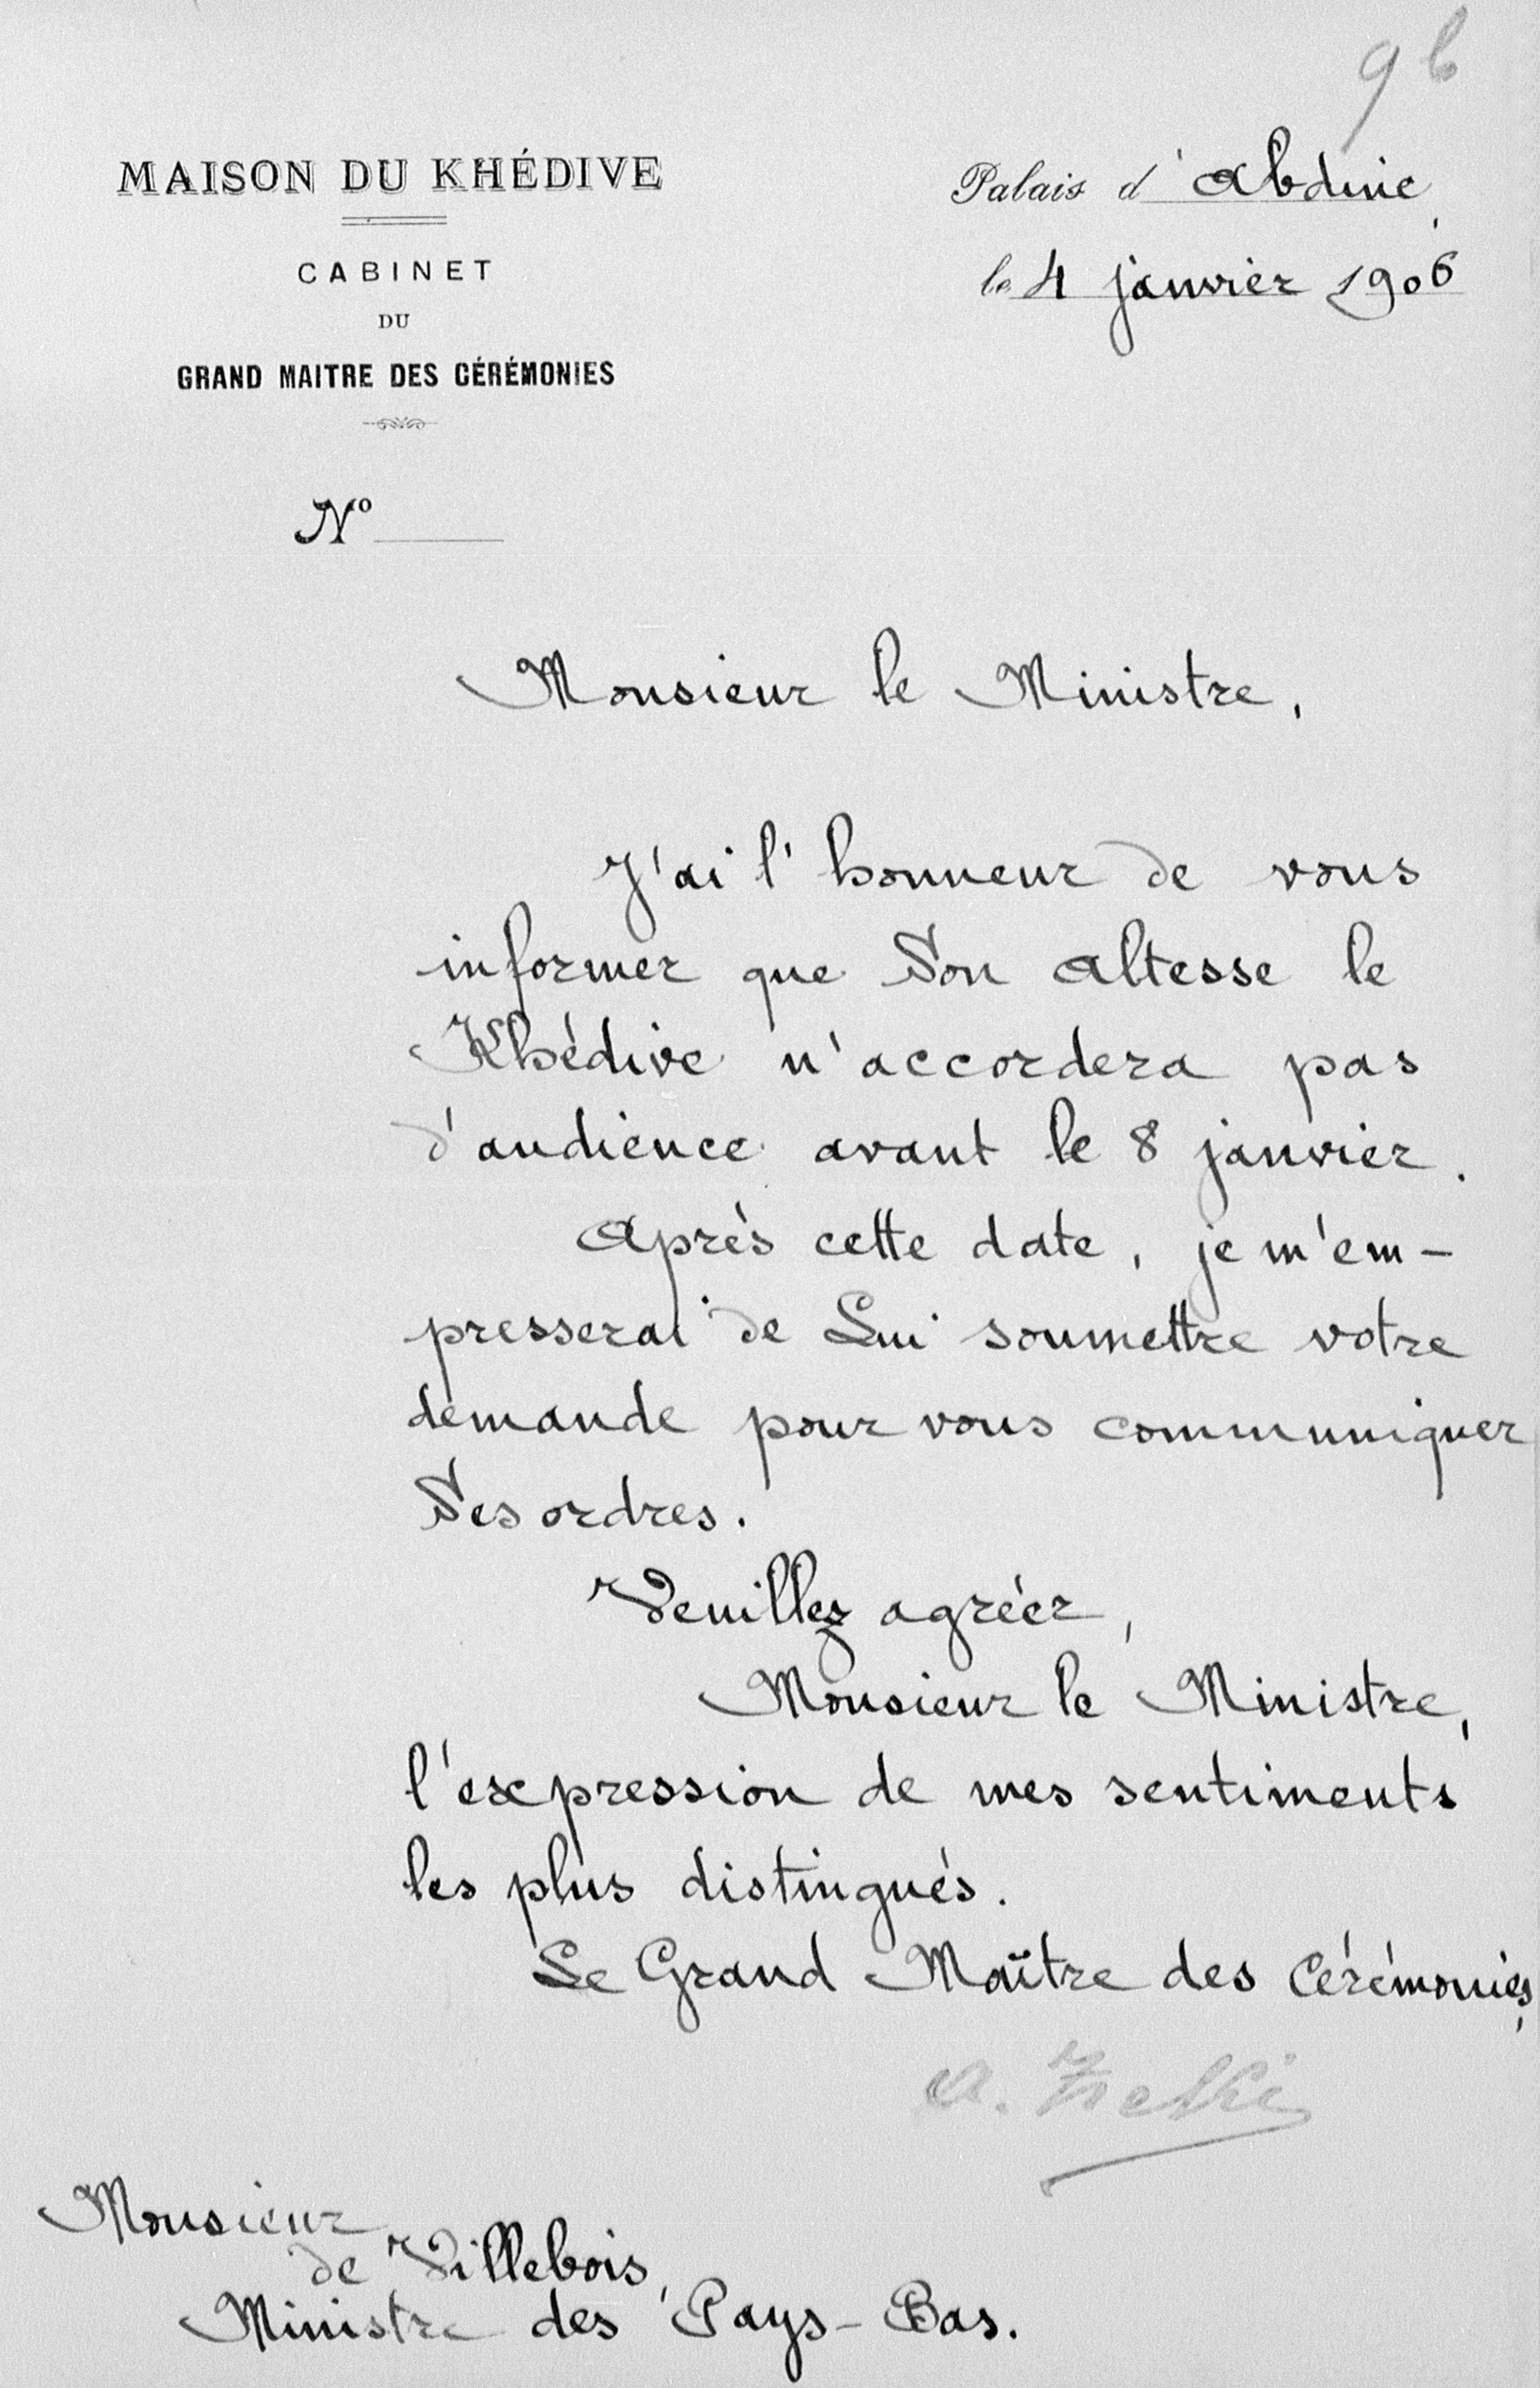 9b
MAISON DU KHÉDIVE
CABINET
DU
GRAND MAITRE DES CÉRÉMONIES
Nº
Palais d'Abdine,
le 4 janvier 1906
Monsieur le Ministre,
J'ai l'honneur de vous
informer que Son Altesse le
Khédive n'accordera pas
d'audience avant le 8 janvier.
Après cette date, je m'em-
presserai de Lui soumettre votre
demande pour vous communiquer
Ses ordres.
Veuillez agréer,
Monsieur le Ministre,
l'expression de mes sentiments
les plus distingués.
Le Grand Maître des Cérémonies,
A. Zekki
Monsieur
de Villebois,
Ministre des Pays-Bas.